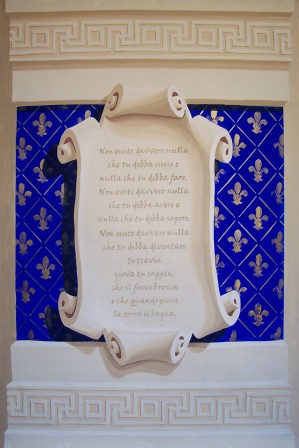 Non esiste davvero nulla
che tu debba essere e
nulla che tu debba fare.
Non esiste davvero nulla
che tu debba avere e
nulla che tu debba sapere.
Non esiste davvero nulla
che tu debba diventare.
Tuttavia
giova tu sappia,
che il fuoco brucia
e che quando piove
la terra si bagna.